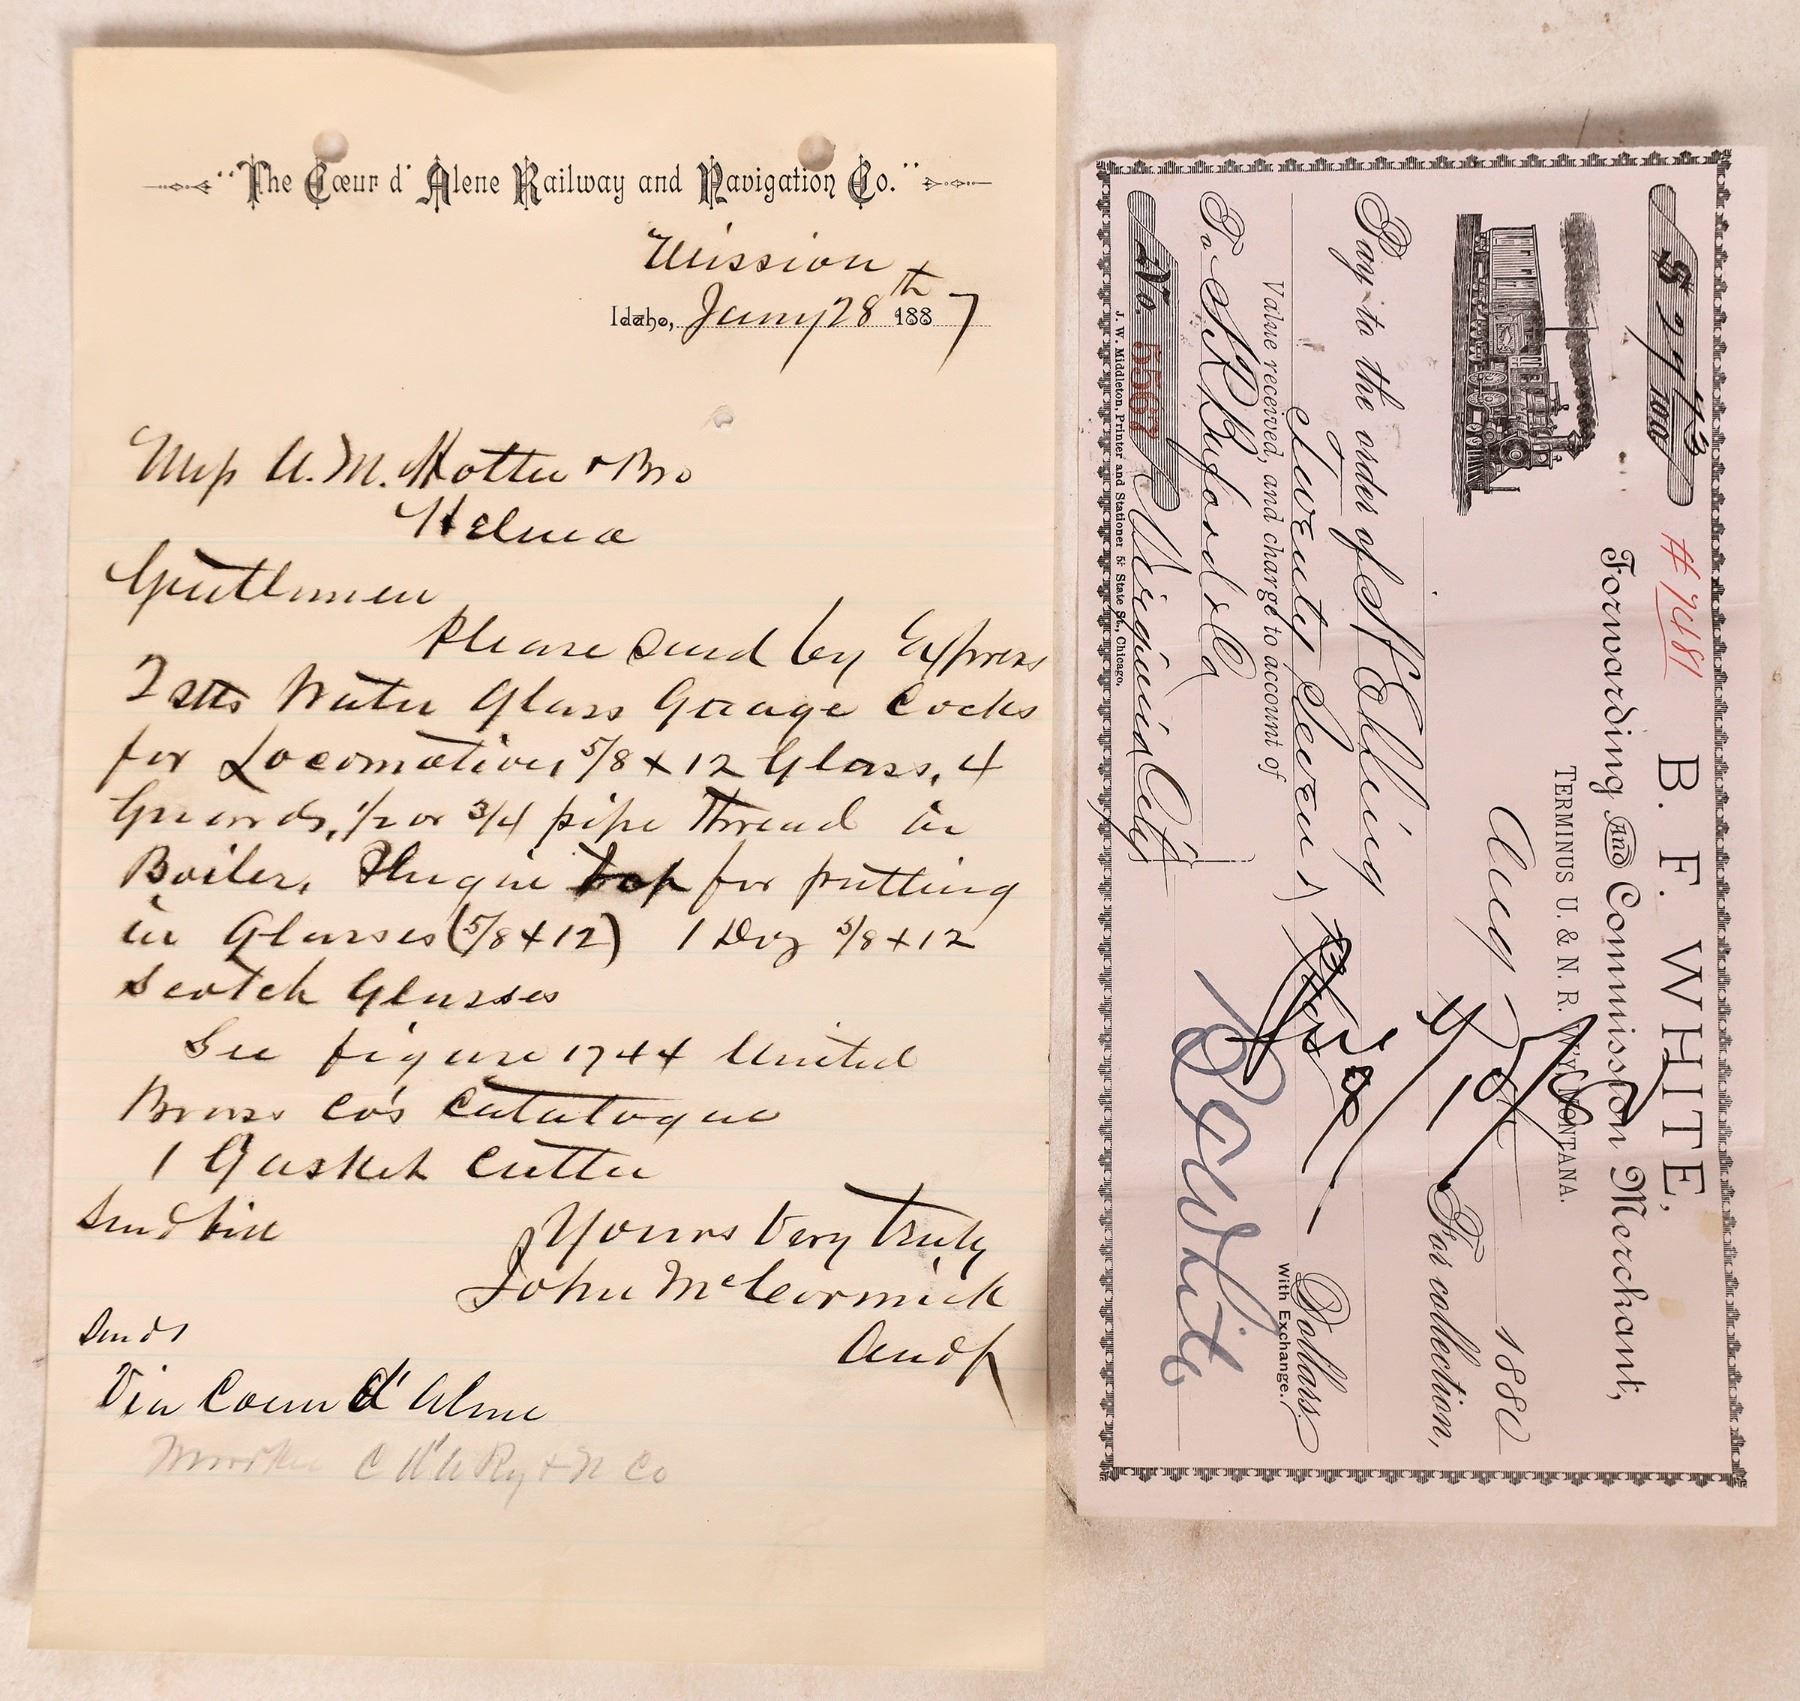 "The Cœur d'Alene Railway and Navigation Co."
Mission
Idaho, Jany 28th 1887
A. M. Holter & Bro
Helena
Gentlemen
Please Send by Express
2 setts Water Glass Guage Cocks
for Locomotive, 5/8 x 12 Glass, 4
Guards, 1/2 or 3/4 pipe Thread in
Boiler, Plug in top for putting
in Glasses (5/8 x 12) 1 Doz 5/8 x 12
Scotch Glasses
See figure 1744 United
Brass Co's Catatogue
1 Gasket Cutter
Send bill
Yours Very Truly
John McCormick
Send
Via Coeur d'Alene
C d'A Ry & N Co
$ 27 43/100
#7481
B. F. WHITE,
Forwarding And Commission Merchant,
TERMINUS U. & N. R. R'Y, MONTANA.
Aug 1880
For collection,
Pay to the order of H Elling
Twenty Seven
Dollars.
Value received, and charge to account of
With Exchange.
To S R Buford & Co
B F White
No. 5567 Virginia City
J. W. Middleton, Printer and Stationer 55 State St., Chicago.